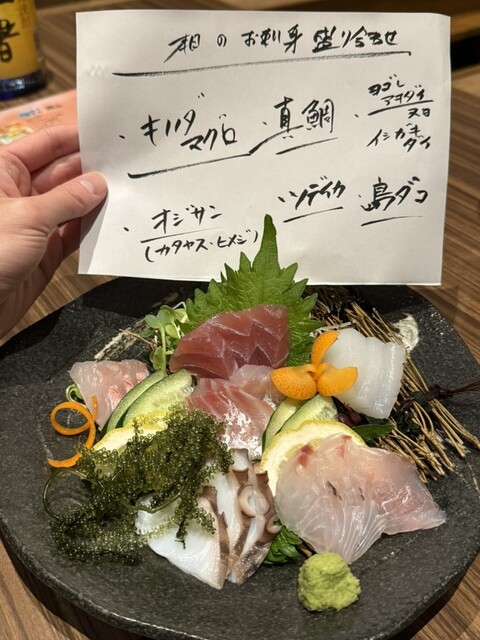 本日のお刺身盛り合わせ
・キハダマグロ
・真鯛
・ヨゴレアオダイ
又ハ
イシガキダイ
・オジサン
(カタヤス・ヒメジ)
・ソデイカ
・島ダコ